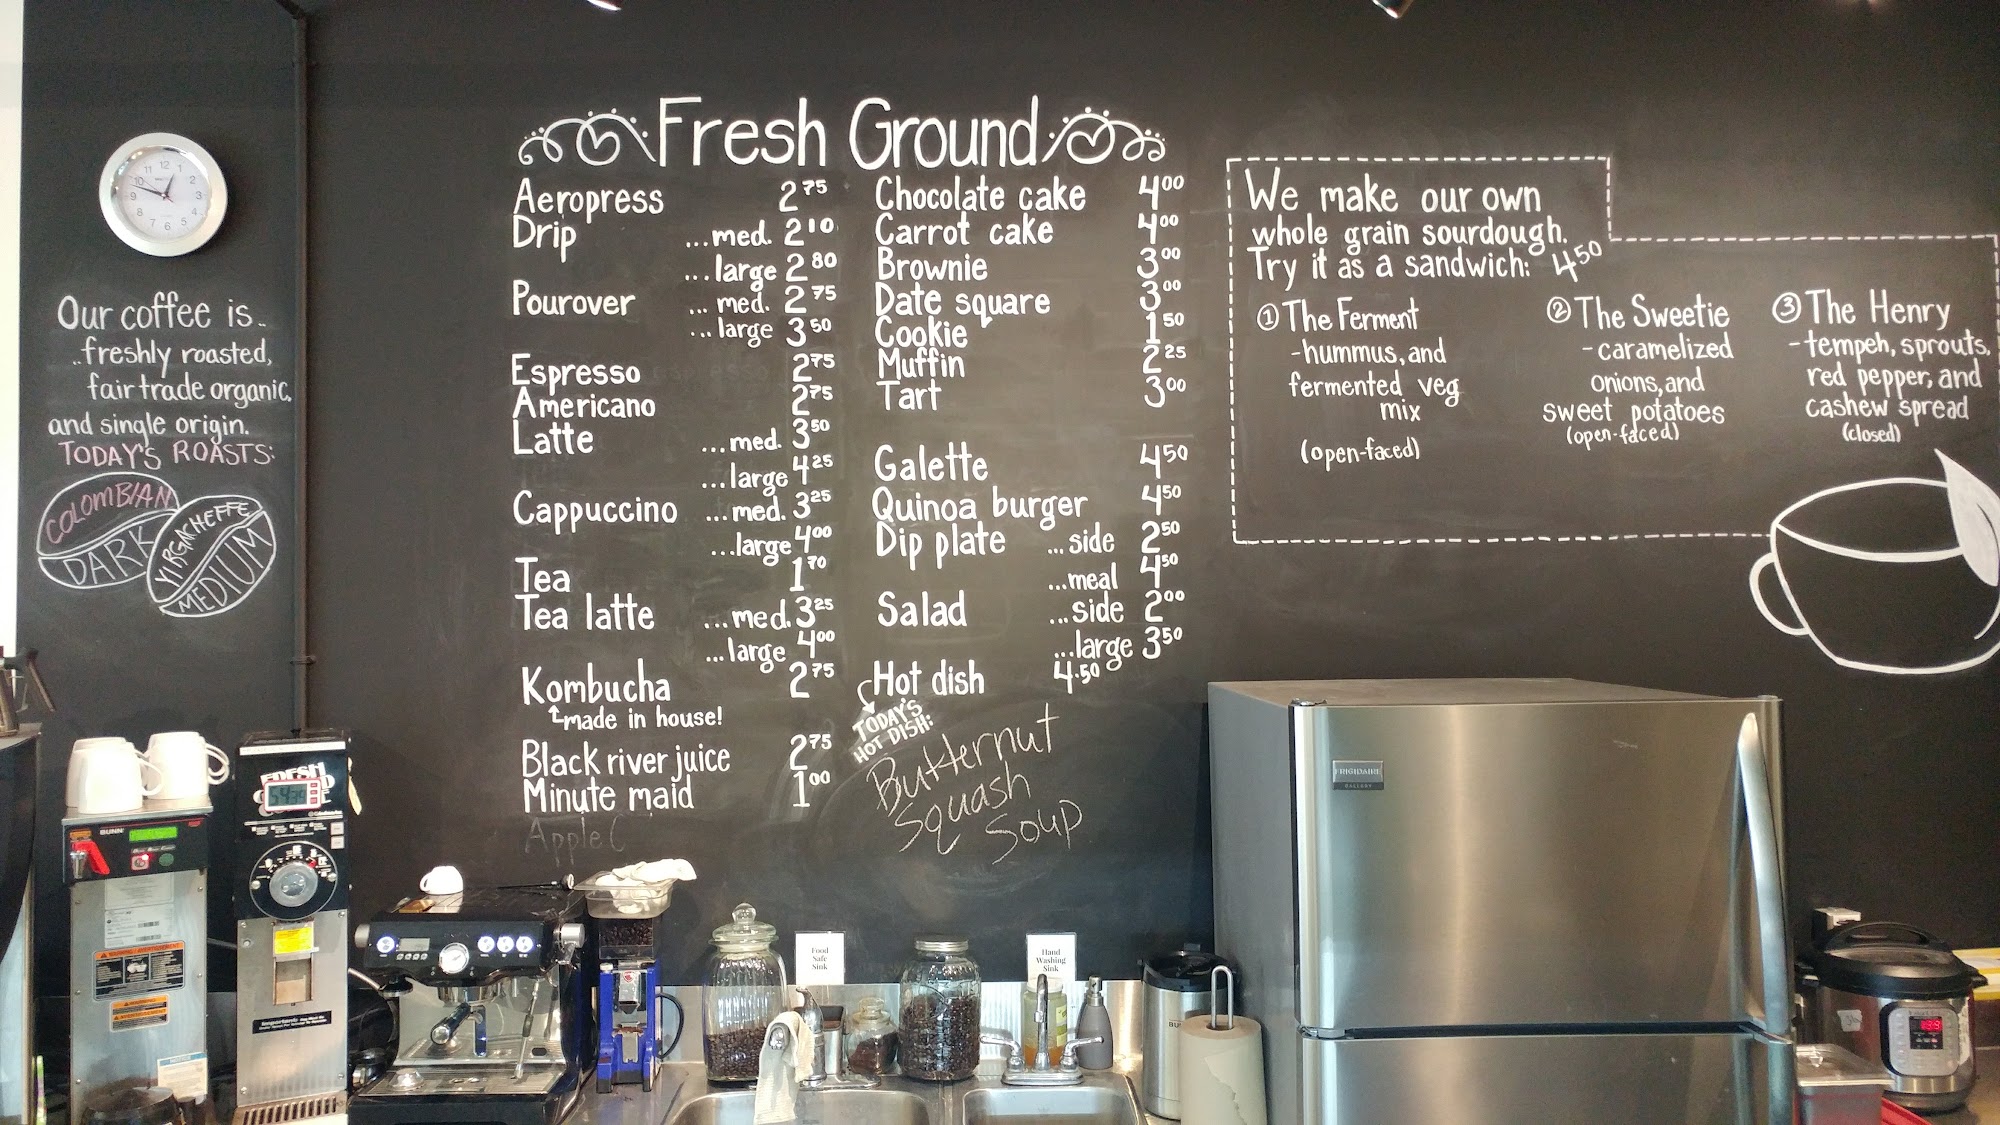 Fresh Ground
Our coffee is..
..freshly roasted,
fair trade organic,
and single origin.
TODAY'S ROASTS:
COLOMBIAN
DARK
YIRGACHEFFE
MEDIUM
Aeropress 2 75
Drip ...med. 2 10
...large 2 80
Pourover ...med. 2 75
...large 3 50
Espresso 2 75
Americano 2 75
Latte ...med. 3 50
...large 4 25
Cappuccino ...med. 3 25
...large 4 00
Tea 1 70
Tea latte ...med. 3 25
...large 4 00
Kombucha 2 75
made in house!
Black river juice 2 75
Minute maid 1 00
Apple C
Chocolate cake 4 00
Carrot cake 4 00
Brownie 3 00
Date square 3 00
Cookie 1 50
Muffin 2 25
Tart 3 00
Galette 4 50
Quinoa burger 4 50
Dip plate ...side 2 50
...meal 4 50
Salad ...side 2 00
...large 3 50
Hot dish 4.50
TODAY'S
HOT DISH:
Butternut
Squash
Soup
We make our own
whole grain sourdough.
Try it as a sandwich: 4 50
① The Ferment
-hummus, and
fermented veg
mix
(open-faced)
② The Sweetie
-caramelized
onions, and
sweet potatoes
(open-faced)
③ The Henry
-tempeh, sprouts,
red pepper, and
cashew spread
(closed)
BUNN
FRESH
Food
Safe
Sink
Hand
Washing
Sink
FRIGIDAIRE
GALLERY